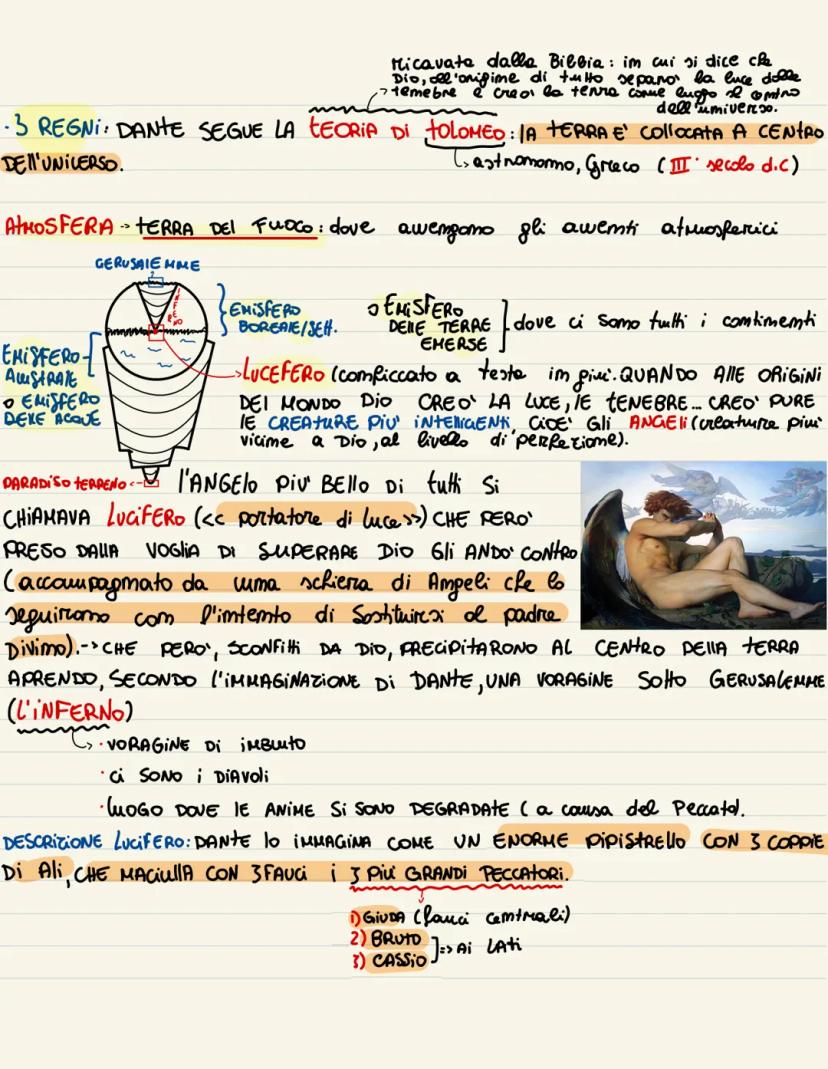 ricavata dalla Bibbia: in cui si dice che
Dio, all'origine di tutto separò la luce dalle
tenebre e creò la terra come luogo al centro
dell'universo.
· 3 REGNI: DANTE SEGUE LA TEORIA DI TOLOMEO: lA TERRA E' COllOCATA A CENTRO
DEll'UNIVERSO.
astronomo, Greco (III° secolo d.C)
ATMOSFERA -> TERRA DEL FUOCO: dove avvengono gli avventi atmosferici
GERUSALEMME
INFERNO
EMISFERO
BOREALE/SETT.
o EMISFERO
DELLE TERRE
EMERSE
dove ci sono tutti i continenti
EMISFERO
AUSTRALE
O EMISFERO
DELLE ACQUE
LUCEFERO (conficcato a testa in giù. QUANDO AllE ORIGINI
DEl MONDO DIO CREO' LA LUCE, lE TENEBRE... CREO' PURE
lE CREATURE PIU' INTElliGENTI, CIOE' Gli ANGEli (creatura più
vicine a Dio, al livello di perfezione).
PARADISO TERRENO
l'ANGElO PIU' BEllO DI tutti SI
CHIAMAVA LUCIFERO (<< portatore di luce>>) CHE PERO'
PRESO DAllA VOGLIA DI SUPERARE DIO Gli ANDO' CONTRO
(accompagnato da una schiera di Angeli che lo
seguirono con l'intento di Sostituirsi al padre
Divino). -> CHE PERO', SCONFITTI DA DIO, PRECIPITARONO AL CENTRO DEllA TERRA
APRENDO, SECONDO l'IMMAGINAZIONE DI DANTE, UNA VORAGINE SOTTO GERUSALEMME
(L'INFERNO)
· VORAGINE DI IMBUTO
· CI SONO I DIAVOLI
· lUOGO DOVE lE ANIME SI SONO DEGRADATE (a causa del Peccato).
DESCRIZIONE LUCIFERO: DANTE lo IMMAGINA COME UN ENORME PIPISTREllO CON 3 COPPIE
DI Ali, CHE MACIUllA CON 3 FAUCI i 3 PIU' GRANDI PECCATORI.
1) GIUDA (fauci centrali)
2) BRUTO
3) CASSIO
=> AI LATI